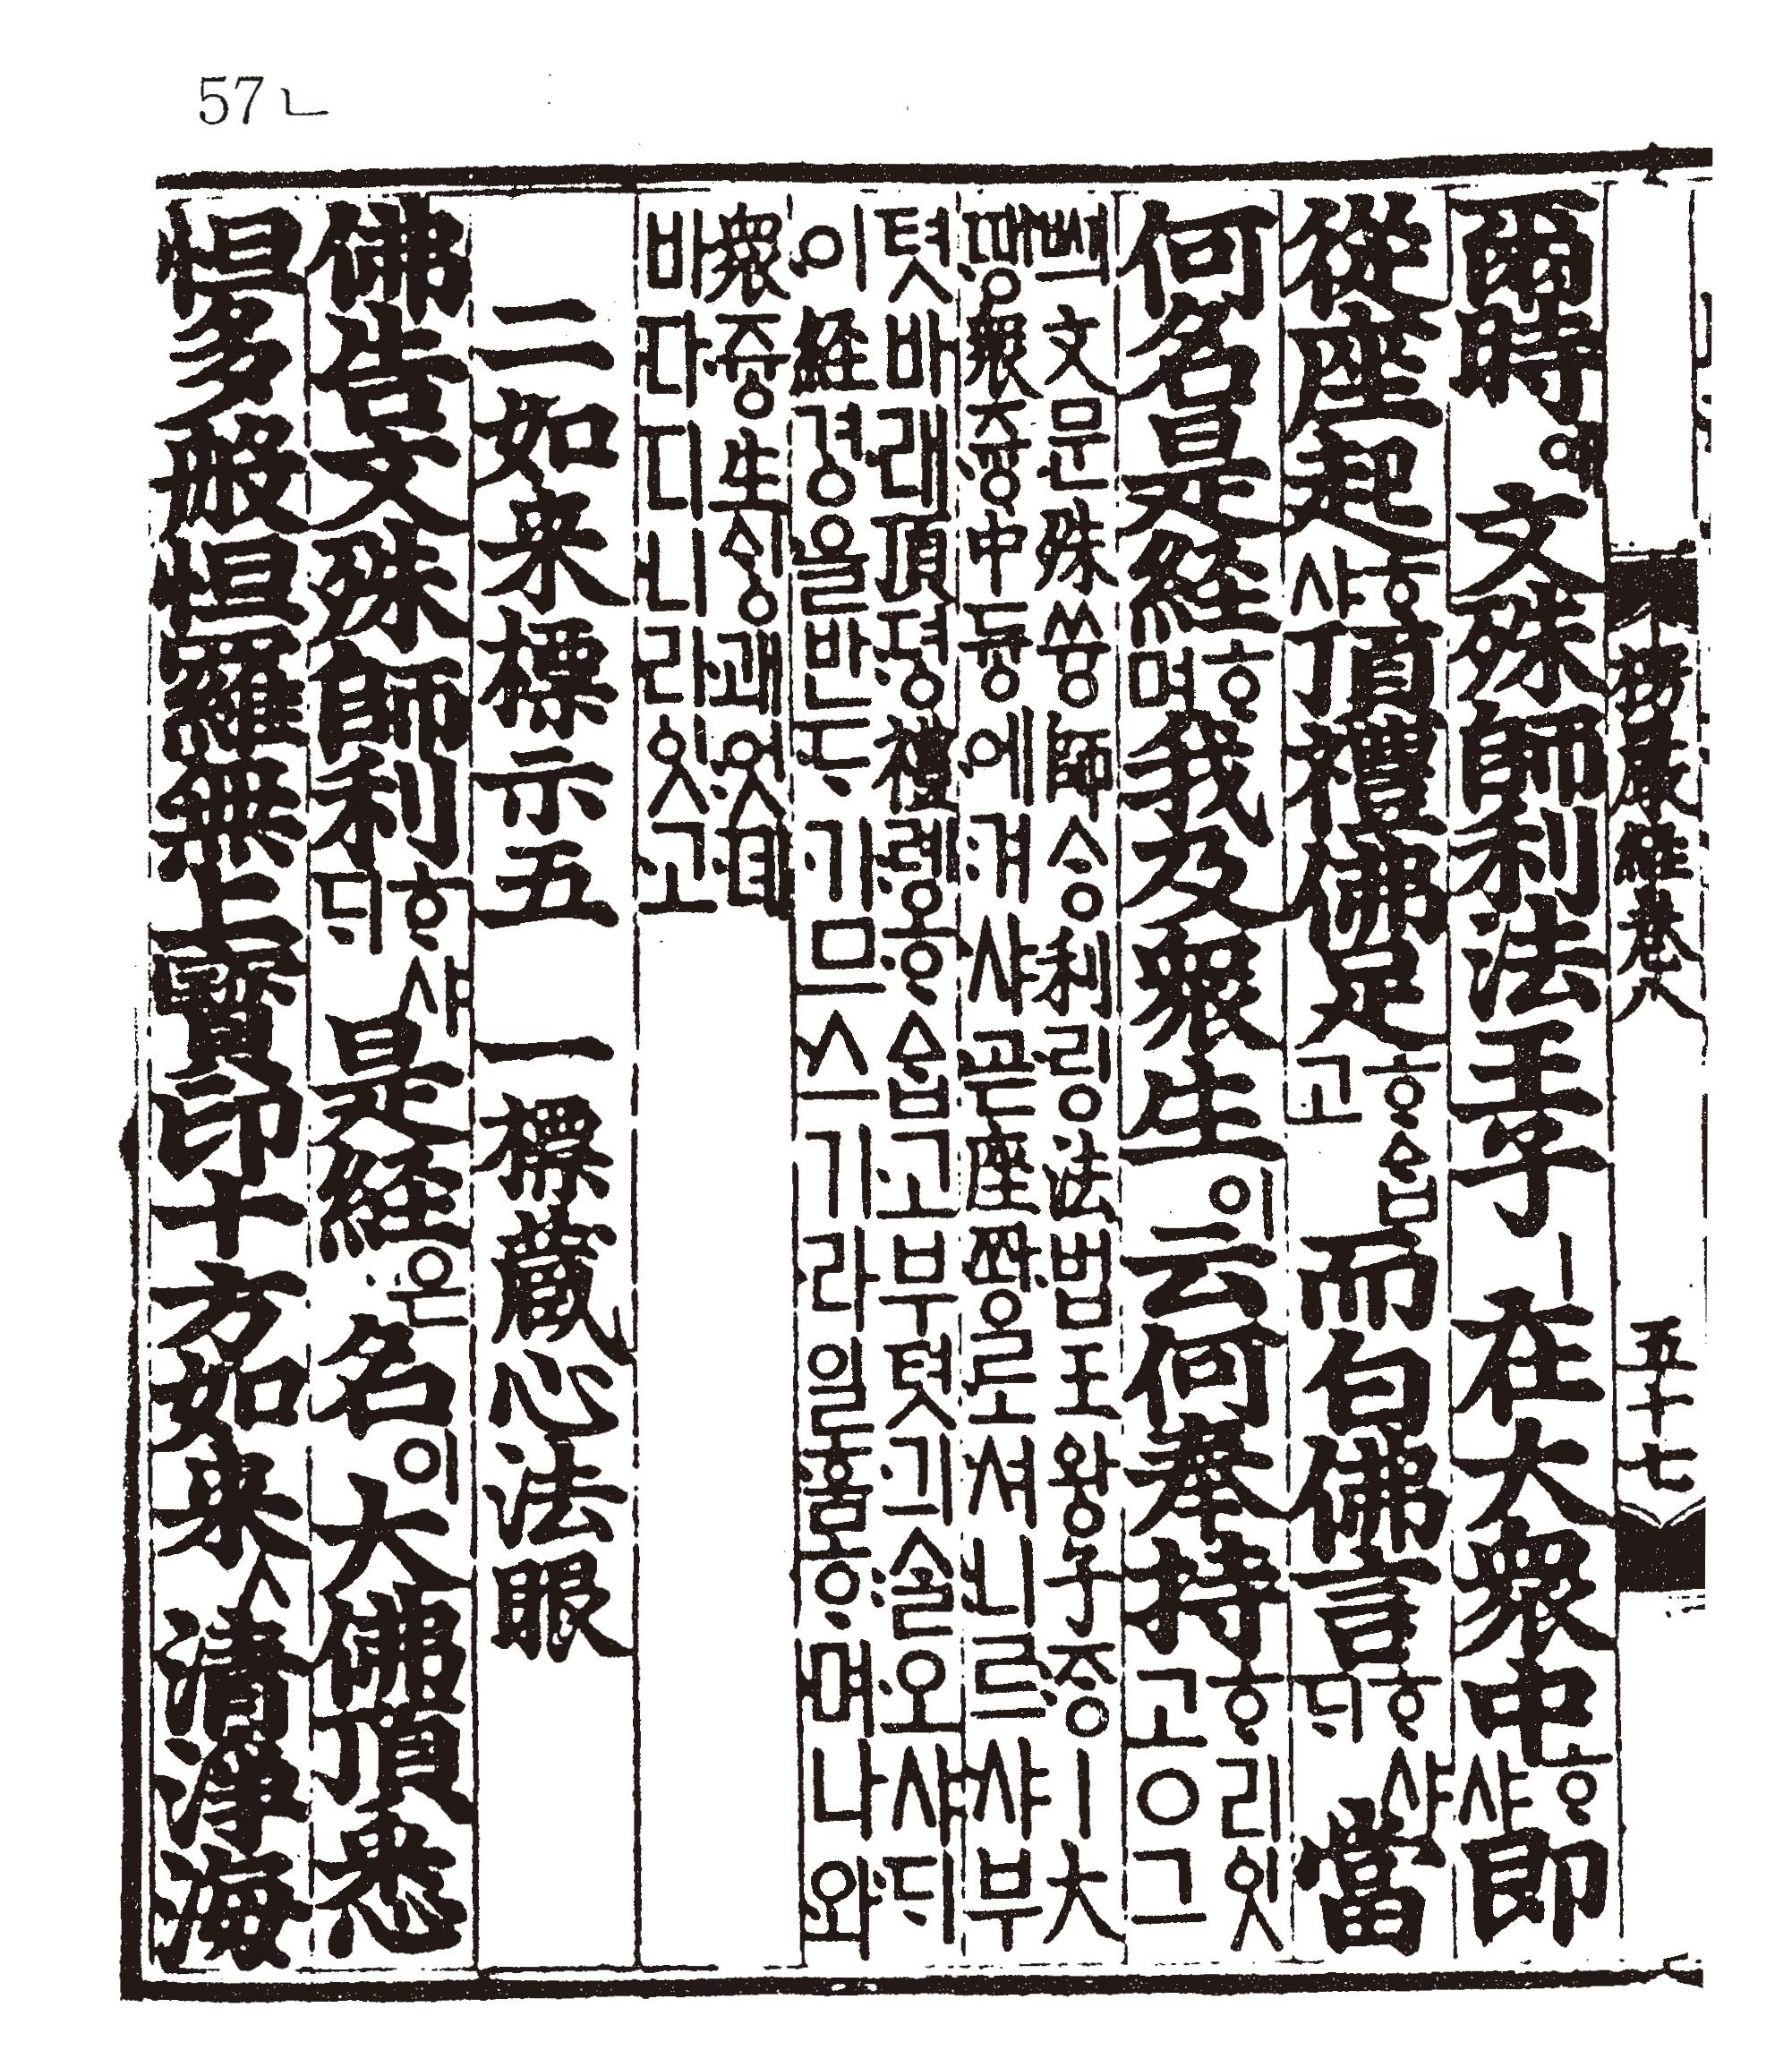 楞嚴經卷八 五十七
爾時예 文殊師利法王子ㅣ 在大衆中ᄒᆞ샤 即
從座起ᄒᆞ샤 頂禮佛足ᄒᆞᅀᆞᆸ고 而白佛言ᄒᆞ샤ᄃᆡ 當
何名是經ᄒᆞ며 我及衆生이 云何奉持ᄒᆞ리ᅌᅵᆺ고 ○그
ᄢᅴ文문殊쓩師ᄉᆞᆼ利링法법王왕子ᄌᆞᆼㅣ大
땡衆즁中듕에겨샤곧座쫭로셔니르샤부
텻바래頂뎡禮롕ᄒᆞᅀᆞᆸ고부텻긔ᄉᆞᆯ오샤ᄃᆡ
이經경을반ᄃᆞ기므스기라일훔ᄒᆞ며나와
衆즁生ᄉᆡᆼ괘엇뎨
바다디니라ᅌᅵᆺ고
二如來標示五 一標藏心法眼
佛告文殊師利ᄒᆞ샤ᄃᆡ 是經은 名이 大佛頂悉
怛多般怛羅無上寶印十方如來ㅅ 清淨海
57ㄴ